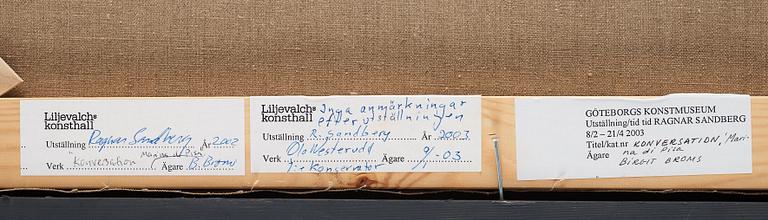 Liljevalchs
konsthall
Utställning Ragnar Sandberg År 2002
Marina di Pisa
Verk "Konversation Ägare B. Broms
Liljevalchs
konsthall
Inga anmärkningar
efter utställningen
Utställning R. Sandberg År 2003
Ola Westerudd
Verk Ägare 9/ -03
Konservator
GÖTEBORGS KONSTMUSEUM
Utställning/tid RAGNAR SANDBERG
8/2 – 21/4 2003
Titel/kat.nr KONVERSATION, 'Mari-
Ägare na di Pisa
BIRGIT BROMS